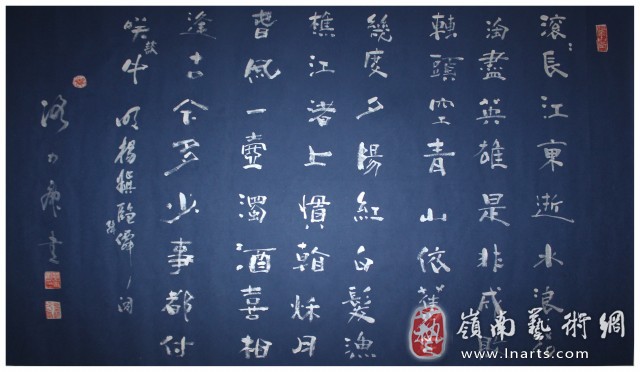 滚〻長江東逝水浪花
淘盡英雄是非成敗
轉頭空青山依舊
幾度夕陽紅白髮漁
樵江渚上慣看秋月
春風一壺濁酒喜相
逢古今多少事都付
咲談中 明楊慎臨江
書
嶺南藝術網
www.lnarts.com